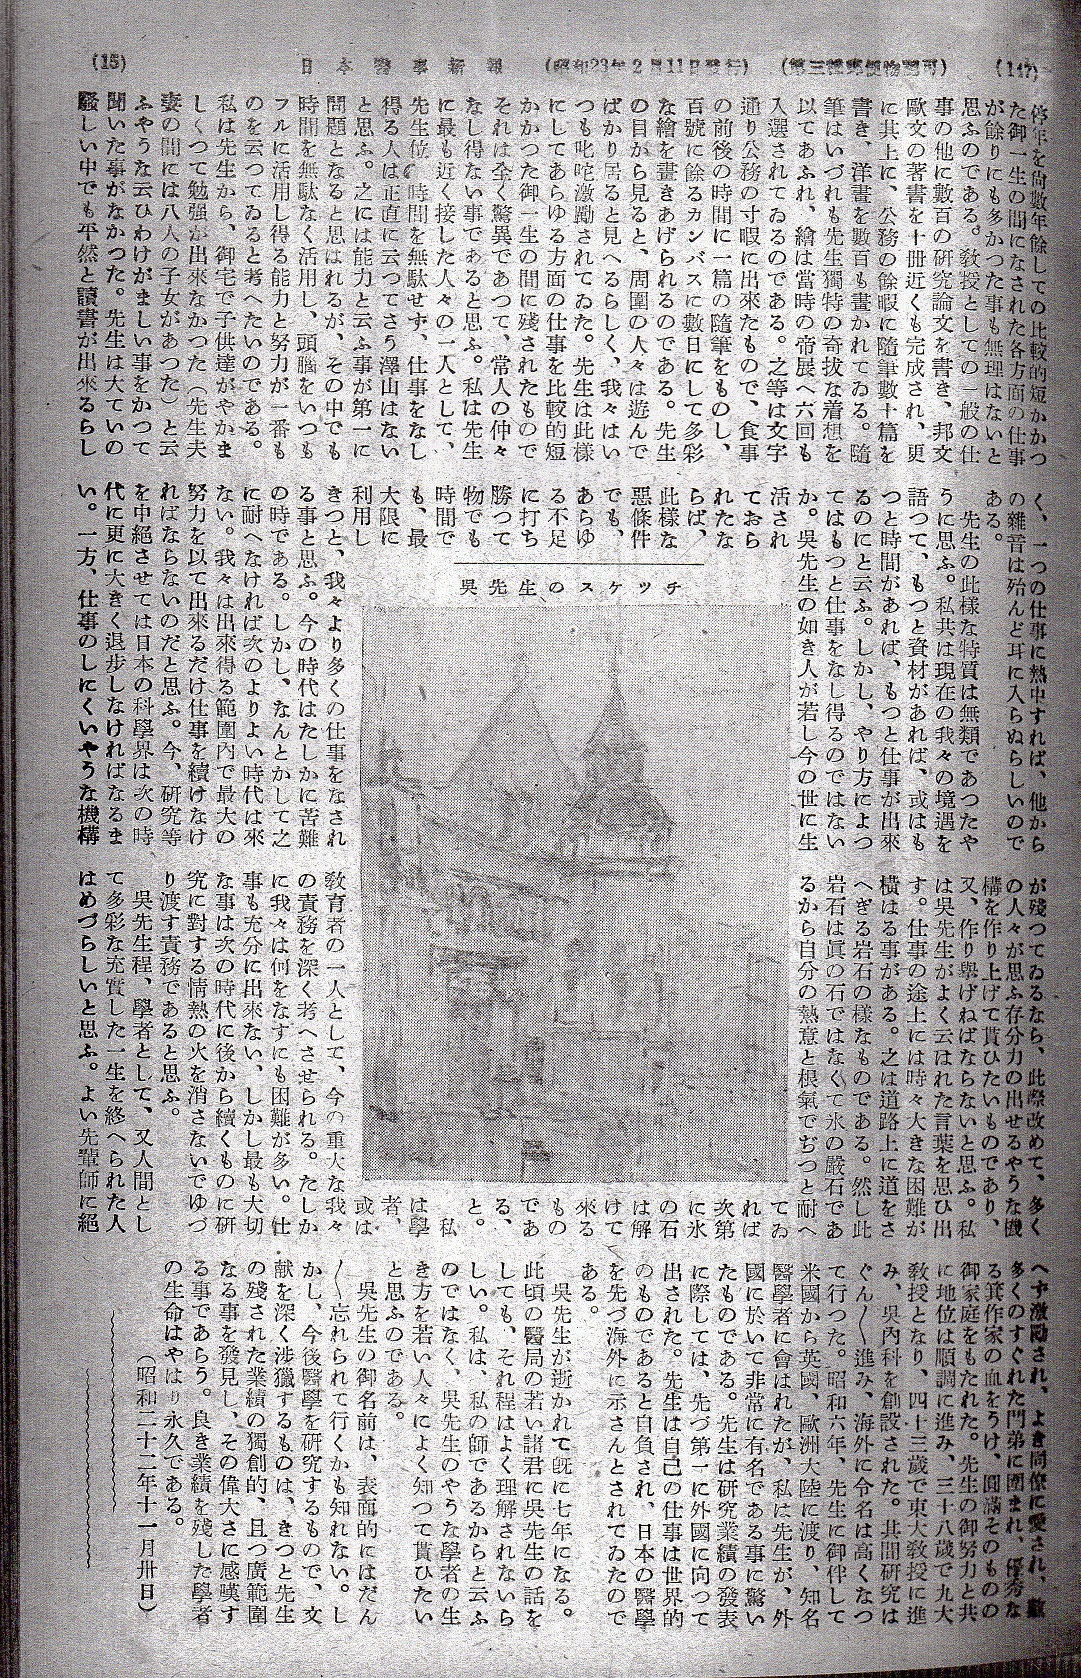 (15)　日本醫事新報　(昭和23年2月11日發行)　(第三種郵便物認可)　(147)
停年を尚數年餘しての比較的短かかつ
た御一生の間になされた各方面の仕事
が餘りにも多かつた事も無理はないと
思ふのである。敎授としての一般の仕
事の他に數百の硏究論文を書き、邦文
歐文の著書を十冊近くも完成され、更
に其上に、公務の餘暇に隨筆數十篇を
書き、洋畫を數百も畫かれてゐる。隨
筆はいづれも先生獨特の奇拔な着想を
以てあふれ、繪は當時の帝展へ六回も
入選されてゐるのである。之等は文字
通り公務の寸暇に出來たもので、食事
の前後の時間に一篇の隨筆をものし、
百號に餘るカンバスに數日にして多彩
な繪を畫きあげられるのである。先生
の目から見ると、周圍の人々は遊んで
ばかり居ると見へるらしく、我々はい
つも叱咤激勵されてゐた。先生は此樣
にしてあらゆる方面の仕事を比較的短
かかつた御一生の間に殘されたもので
それは全く驚異であつて、常人の仲々
なし得ない事であると思ふ。私は先生
に最も近く接した人々の一人として、
先生位、時間を無駄せず、仕事をなし
得る人は正直に云つてさう澤山はない
と思ふ。之には能力と云ふ事が第一に
問題となると思はれるが、その中でも
時間を無駄なく活用し、頭腦をいつも
フルに活用し得る能力と努力が一番も
のを云つてゐると考へたいのである。
私は先生から、御宅で子供達がやかま
しくつて勉強が出來なかつた（先生夫
妻の間には八人の子女があつた）と云
ふやうな云ひわけがましい事をかつて
聞いた事がなかつた。先生は大ていの
騷しい中でも平然と讀書が出來るらし
く、一つの仕事に熱中すれば、他から
の雜音は殆んど耳に入らぬらしいので
ある。
先生の此樣な特質は無類であつたや
うに思ふ。私共は現在の我々の境遇を
語つて、もつと資材があれば、或はも
つと時間があれば、もつと仕事が出來
るのにと云ふ。しかし、やり方によつ
てはもつと仕事をなし得るのではない
か。吳先生の如き人が若し今の世に生
活され
ておら
れたな
らば、
此樣な
惡條件
でも、
あらゆ
る不足
に打ち
勝つて
物でも
時間で
も、最
大限に
利用し
吳先生のスケッチ
きつと、我々より多くの仕事をなされ
る事と思ふ。今の時代はたしかに苦難
の時である。しかし、なんとかして之
に耐へなければ次のよりよい時代は來
ない。我々は出來得る範圍內で最大の
努力を以て出來るだけ仕事を續けなけ
ればならないのだと思ふ。今、硏究等
を中絕させては日本の科學界は次の時
代に更に大きく退步しなければなるま
い。一方、仕事のしにくいやうな機構
が殘つてゐるなら、此際改めて、多く
の人々が思ふ存分力の出せるやうな機
構を作り上げて貰ひたいものであり、
又、作り擧げねばならないと思ふ。私
は吳先生がよく云はれた言葉を思ひ出
す。仕事の途上には時々大きな困難が
橫はる事がある。之は道路上に道をさ
へぎる岩石の樣なものである。然し此
岩石は眞の石ではなくて氷の嚴石であ
るから自分の熱意と根氣でぢつと耐へ
てゐ
れば
次第
に氷
の石
は解
けて
來る
もの
であ
る、
と。
私
は學
者、
或は
敎育者の一人として、今の重大な我々
の責務を深く考へさせられる。たしか
に我々は何をなすにも困難が多い。仕
事も充分に出來ない、しかし最も大切
な事は次の時代に後から續くものに硏
究に對する情熱の火を消さないでゆづ
り渡す責務であると思ふ。
吳先生程、學者として、又人間とし
て多彩な充實した一生を終へられた人
はめづらしいと思ふ。よい先輩師に絕
へず激勵され、よき同僚に愛され、數
多くのすぐれた門弟に圍まれ、優秀な
る箕作家の血をうけ、圓滿そのものの
御家庭をもたれた。先生の御努力と共
に地位は順調に進み、三十八歲で九大
敎授となり、四十三歲で東大敎授に進
み、吳內科を創設された。其間硏究は
ぐん〱進み、海外に令名は高くなつ
て行つた。昭和六年、先生に御伴して
米國から英國、歐洲大陸に渡り、知名
醫學者に會はれたが、私は先生が、外
國に於いて非常に有名である事に驚い
たものである。先生は硏究業績の發表
に際しては、先づ第一に外國に向つて
出された。先生は自己の仕事は世界的
のものであると自負され、日本の醫學
を先づ海外に示さんとされてゐたので
ある。
吳先生が逝かれて旣に七年になる。
此頃の醫局の若い諸君に吳先生の話を
しても、それ程はよく理解されないら
しい。私は、私の師であるからと云ふ
のではなく、吳先生のやうな學者の生
き方を若い人々によく知つて貰ひたい
と思ふのである。
吳先生の御名前は、表面的にはだん
〱忘れられて行くかも知れない。し
かし、今後醫學を硏究するもので、文
献を深く涉獵するものは、きつと先生
の殘された業績の獨創的、且つ廣範圍
なる事を發見し、その偉大さに感嘆す
る事であらう。良き業績を殘した學者
の生命はやはり永久である。
（昭和二十二年十一月卅日）